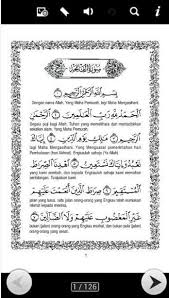 سُورَةُ الفَاتِحَة
بِسْمِ اللَّهِ الرَّحْمَٰنِ الرَّحِيمِ ١
Dengan nama Allah, Yang Maha Pemurah, lagi Maha Mengasihani.
الْحَمْدُ لِلَّهِ رَبِّ الْعَٰلَمِينَ ٢ الرَّحْمَٰنِ
Segala puji bagi Allah, Tuhan yang memelihara dan mentadbirkan
sekalian alam. Yang Maha Pemurah
الرَّحِيمِ ٣ مَٰلِكِ يَوْمِ الدِّينِ ٤ إِيَّاكَ
lagi Maha Mengasihani. Yang Menguasai pemerintahan hari
Pembalasan (hari Akhirat). Engkaulah sahaja (Ya Allah)
نَعْبُدُ وَإِيَّاكَ نَسْتَعِينُ ٥ اهْدِنَا الصِّرَٰطَ
yang kami sembah, dan kepada Engkaulah sahaja kami memohon
pertolongan. Tunjukilah kami
الْمُسْتَقِيمَ ٦ صِرَٰطَ الَّذِينَ أَنْعَمْتَ عَلَيْهِمْ
jalan yang lurus. Iaitu jalan orang-orang yang Engkau telah kurniakan
nikmat kepada mereka,
غَيْرِ الْمَغْضُوبِ عَلَيْهِمْ وَلَا الضَّالِّينَ ٧
bukan (jalan) orang-orang yang Engkau telah murkai, dan bukan pula (jalan)
orang-orang yang sesat.
1 / 126